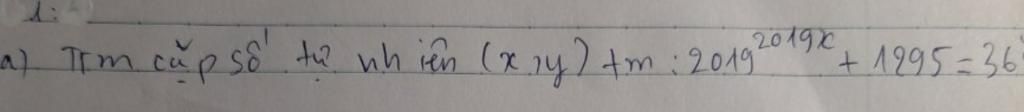 1:
a) Tìm cặp số tự nhiên (x,y) tm: 2019^2019x + 1295 = 36